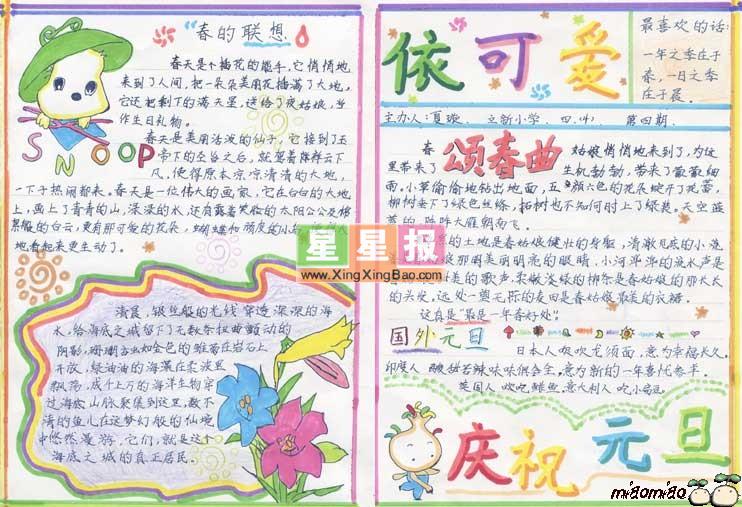 春的联想
春天是个插花的能手，它悄悄地
来到了人间，把一朵朵美丽花插满了大地。
它还把剩下的满天星，送给了夜姑娘，当
作生日礼物。
春天是美丽活泼的仙子，它接到玉
帝下的圣旨之后，就驾着祥云下
凡，使得原本凉凉清清的大地，
一下子热闹起来。春天是一位伟大的画家，它在白白的大地
上，画上了青青的山，深深的水，还有露着笑脸的太阳公公及
的白云，更有那可爱的花朵，蝴蝶和顽皮的小鸟，
地看起来更生动了。
SNOOP
清晨，银丝般的光线穿透深深的海
水，给海底之城留下了无数条扭曲颤动的
阴影，珊瑚岩如金色的雏菊在岩石上
开放，绿油油的海藻在柔波里
飘荡，成千上万的海洋生物穿
过海底山脉聚集到这里，数不
清的鱼儿在这梦幻般的仙境
中悠然漫游，它们，就是这个
海底之城的真正居民。
依可爱
最喜欢的话：
一年之季在于
春，一日之季
在于晨。
主办人：夏璇 立新小学 四.(4) 第四期
颂春曲
春姑娘悄悄地来到了，为这
里带来了生机勃勃，带来了微微细
雨。小草偷偷地钻出地面，五颜六色的花朵绽开了花蕾，
柳树垂下了绿色丝绦，柘树也不知何时上了绿装。天空蓝
蓝的，阵阵大雁朝南飞。
黑的土地是春姑娘健壮的身躯，清澈见底的小流
娘那明美丽明亮的眼睛，小河哗哗的流水声是
美的歌声。柔嫩淡绿的柳条是春姑娘的那长长
的头发，远处一望无际的麦田是春姑娘最美的衣裙。
这真是“最是一年春好处”！
国外元旦
日本人吸吹龙须面，意为幸福长久。
印度人酸甜苦辣味味俱全，意为新的一年喜忧参半。
英国人吹吃鲱鱼，意大利人吃小扁豆。
庆祝元旦
星星报
www.XingXingBao.com
miaomiao